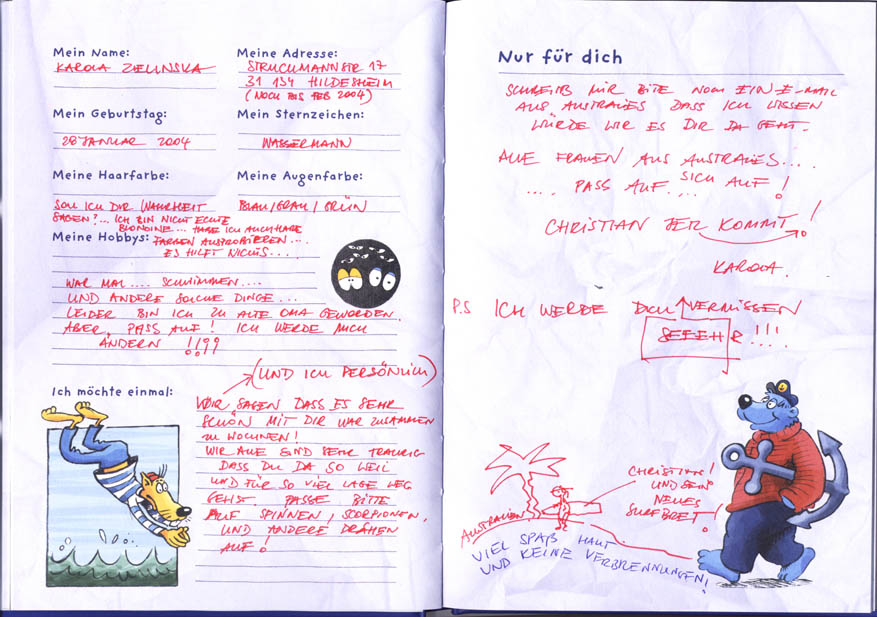 Mein Name:
KAROLA ZELINSKA
Meine Adresse:
STRUCKMANNSTR 17
31 134 HILDESHEIM
(NOCH BIS FEB 2004)
Mein Geburtstag:
28 JANUAR 2004
Mein Sternzeichen:
WASSERMANN
Meine Haarfarbe:
SOLL ICH DIR WAHRHEIT
SAGEN?... ICH BIN NICHT ECHTE
BLONDINE... HABE ICH AUCH
FARBEN AUSPROBIEREN...
ES HILFT NICHTS....
Meine Augenfarbe:
BLAU/GRAU/GRÜN
Meine Hobbys:
WAR MAL.... SCHWIMMEN....
UND ANDERE SOLCHE DINGE...
LEIDER BIN ICH ZU ALTE OMA GEWORDEN.
ABER, PASS AUF! ICH WERDE MICH
ÄNDERN !!??
Ich möchte einmal:
(UND ICH PERSÖNLICH)
WIR SAGEN DASS ES SEHR
SCHÖN MIT DIR WAR ZUSAMMEN
ZU WOCHNEN!
WIR ALLE SIND SEHR TRAURIG
DASS DU DA SO WEIT
UND FÜR SO VIEL LAGE WEG
GEHST. PASSE BITTE
AUF SPINNEN, SCORPIONEN,
UND ANDERE DRAHEN
AUF!
Nur für dich
SCHREIB MIR BITTE NOCH EIN E-MAIL
AUS AUSTRALIES DASS ICH WISSEN
WÜRDE WIE ES DIR DA GEHT.
ALLE FRAUEN AUS AUSTRALIES....
.... PASS AUF... SICH AUF!
CHRISTIAN DER KOMMT!
KAROLA.
P.S ICH WERDE DICH VERMISSEN
SEEEHR!!!
CHRISTIAN!
UND SEIN
NEUES
SURFBRET!
AUSTRALIEN
VIEL SPAß HAUT
UND KEINE VERBRENNUNGEN!